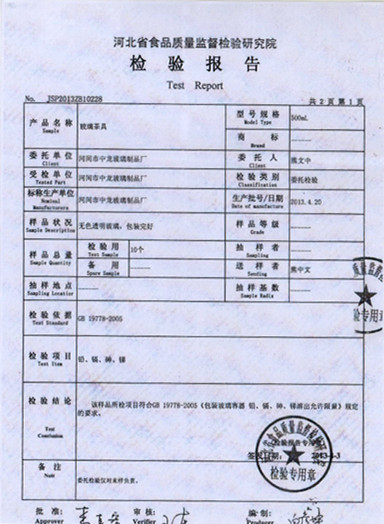 河北省食品质量监督检验研究院
检验报告
Test Report
No. JSP2013ZB10228 共 2 页 第 1 页
产品名称 Sample 玻璃茶具 型号规格 Model Type 500mL
商标 Brand ……
委托单位 Client 河间市中龙玻璃制品厂 委托人 Client 熊文中
受检单位 Tested Part 河间市中龙玻璃制品厂 检验类别 Classification 委托检验
标称生产单位 Nominal Manufacturers 河间市中龙玻璃制品厂 生产批号/日期 Date of manufacture 2013.4.20
样品状况 Sample Description 无色透明玻璃，包装完好 样品等级 Grade ……
样品总量 Sample Quantity 检验用 Test Sample 10个 抽样者 Sampling ……
备用 Spare Sample …… 送样者 Sending 熊中文
抽样地点 Sampling Locatior …… 抽样基数 Sample Radix ……
检验依据 Test Standard GB 19778-2005
检验项目 Test Item 铅、镉、砷、锑
检验结论 Test Conclusion 该样品所检项目符合GB 19778-2005《包装玻璃容器 铅、镉、砷、锑溶出允许限量》规定
的要求。
(检验报告专用章)
签发日期：
检验专用章
备注 Note 委托检验仅对来样负责。
批准： 审核： 编制：
Approver Verifier Producer